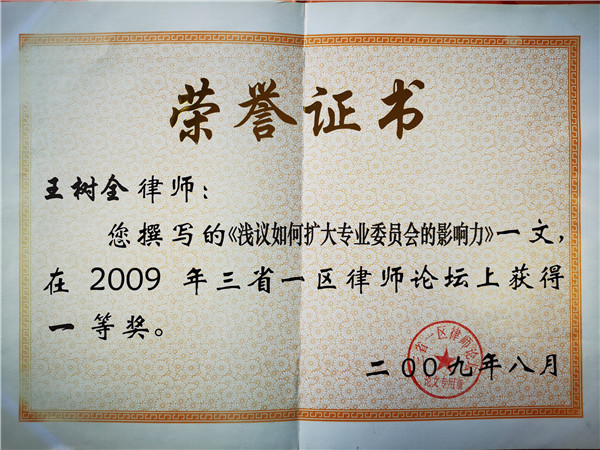 荣誉证书
王树全律师：
您撰写的《浅议如何扩大专业委员会的影响力》一文，
在 2009 年三省一区律师论坛上获得
一等奖。
三省一区律师论坛
论文专用章
二00九年八月